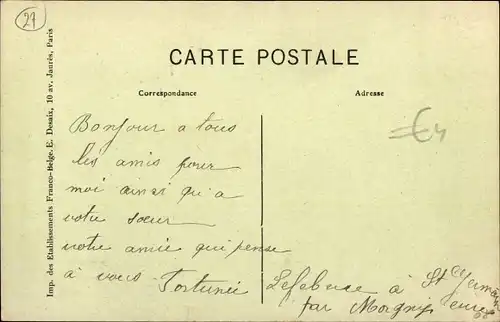 27
CARTE POSTALE
Correspondance
Adresse
Imp. des Etablissements Franco-Belge. E. Desaix, 10 av. Jaurès, Paris
Bonjour a tous
les amis pour
moi ainsi qu'a
votre soeur
votre amie qui pense
à vous Fortunée Lefebvre à St Germain
par Morgny Eure
€4